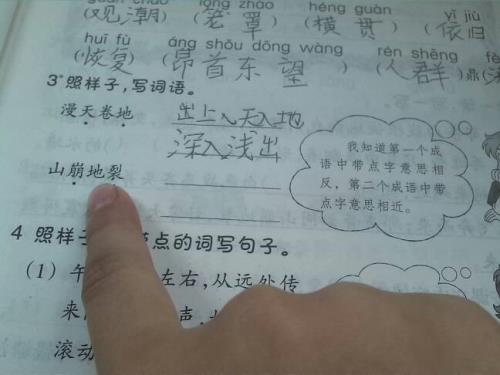 lóng zhào héng guàn yī jiù
(观潮) (笼罩) (横贯) (依旧
huī fù áng shǒu dōng wàng rén shēng
(恢复) (昂首东望) (人群) 鼎
3 照样子,写词语。
漫天卷地 出生入死 深入浅出
山崩地裂
我知道第一个成
语中带点字意思相
反,第二个成语中带
点字意思相近。
4 照样子 点的词写句子。
(1) 午 左右,从远处传
来 声,
滚动